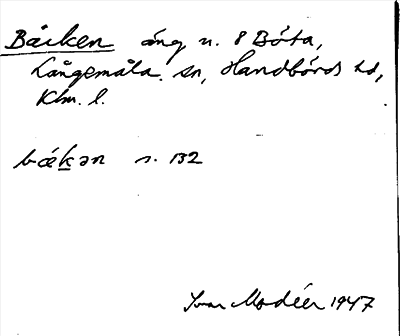 Bäcken äng n. 8 Böta,
Långemåla sn, Handbörds hd,
Klm. l.
bǽkən s. 132
Ivar Modéer 1947